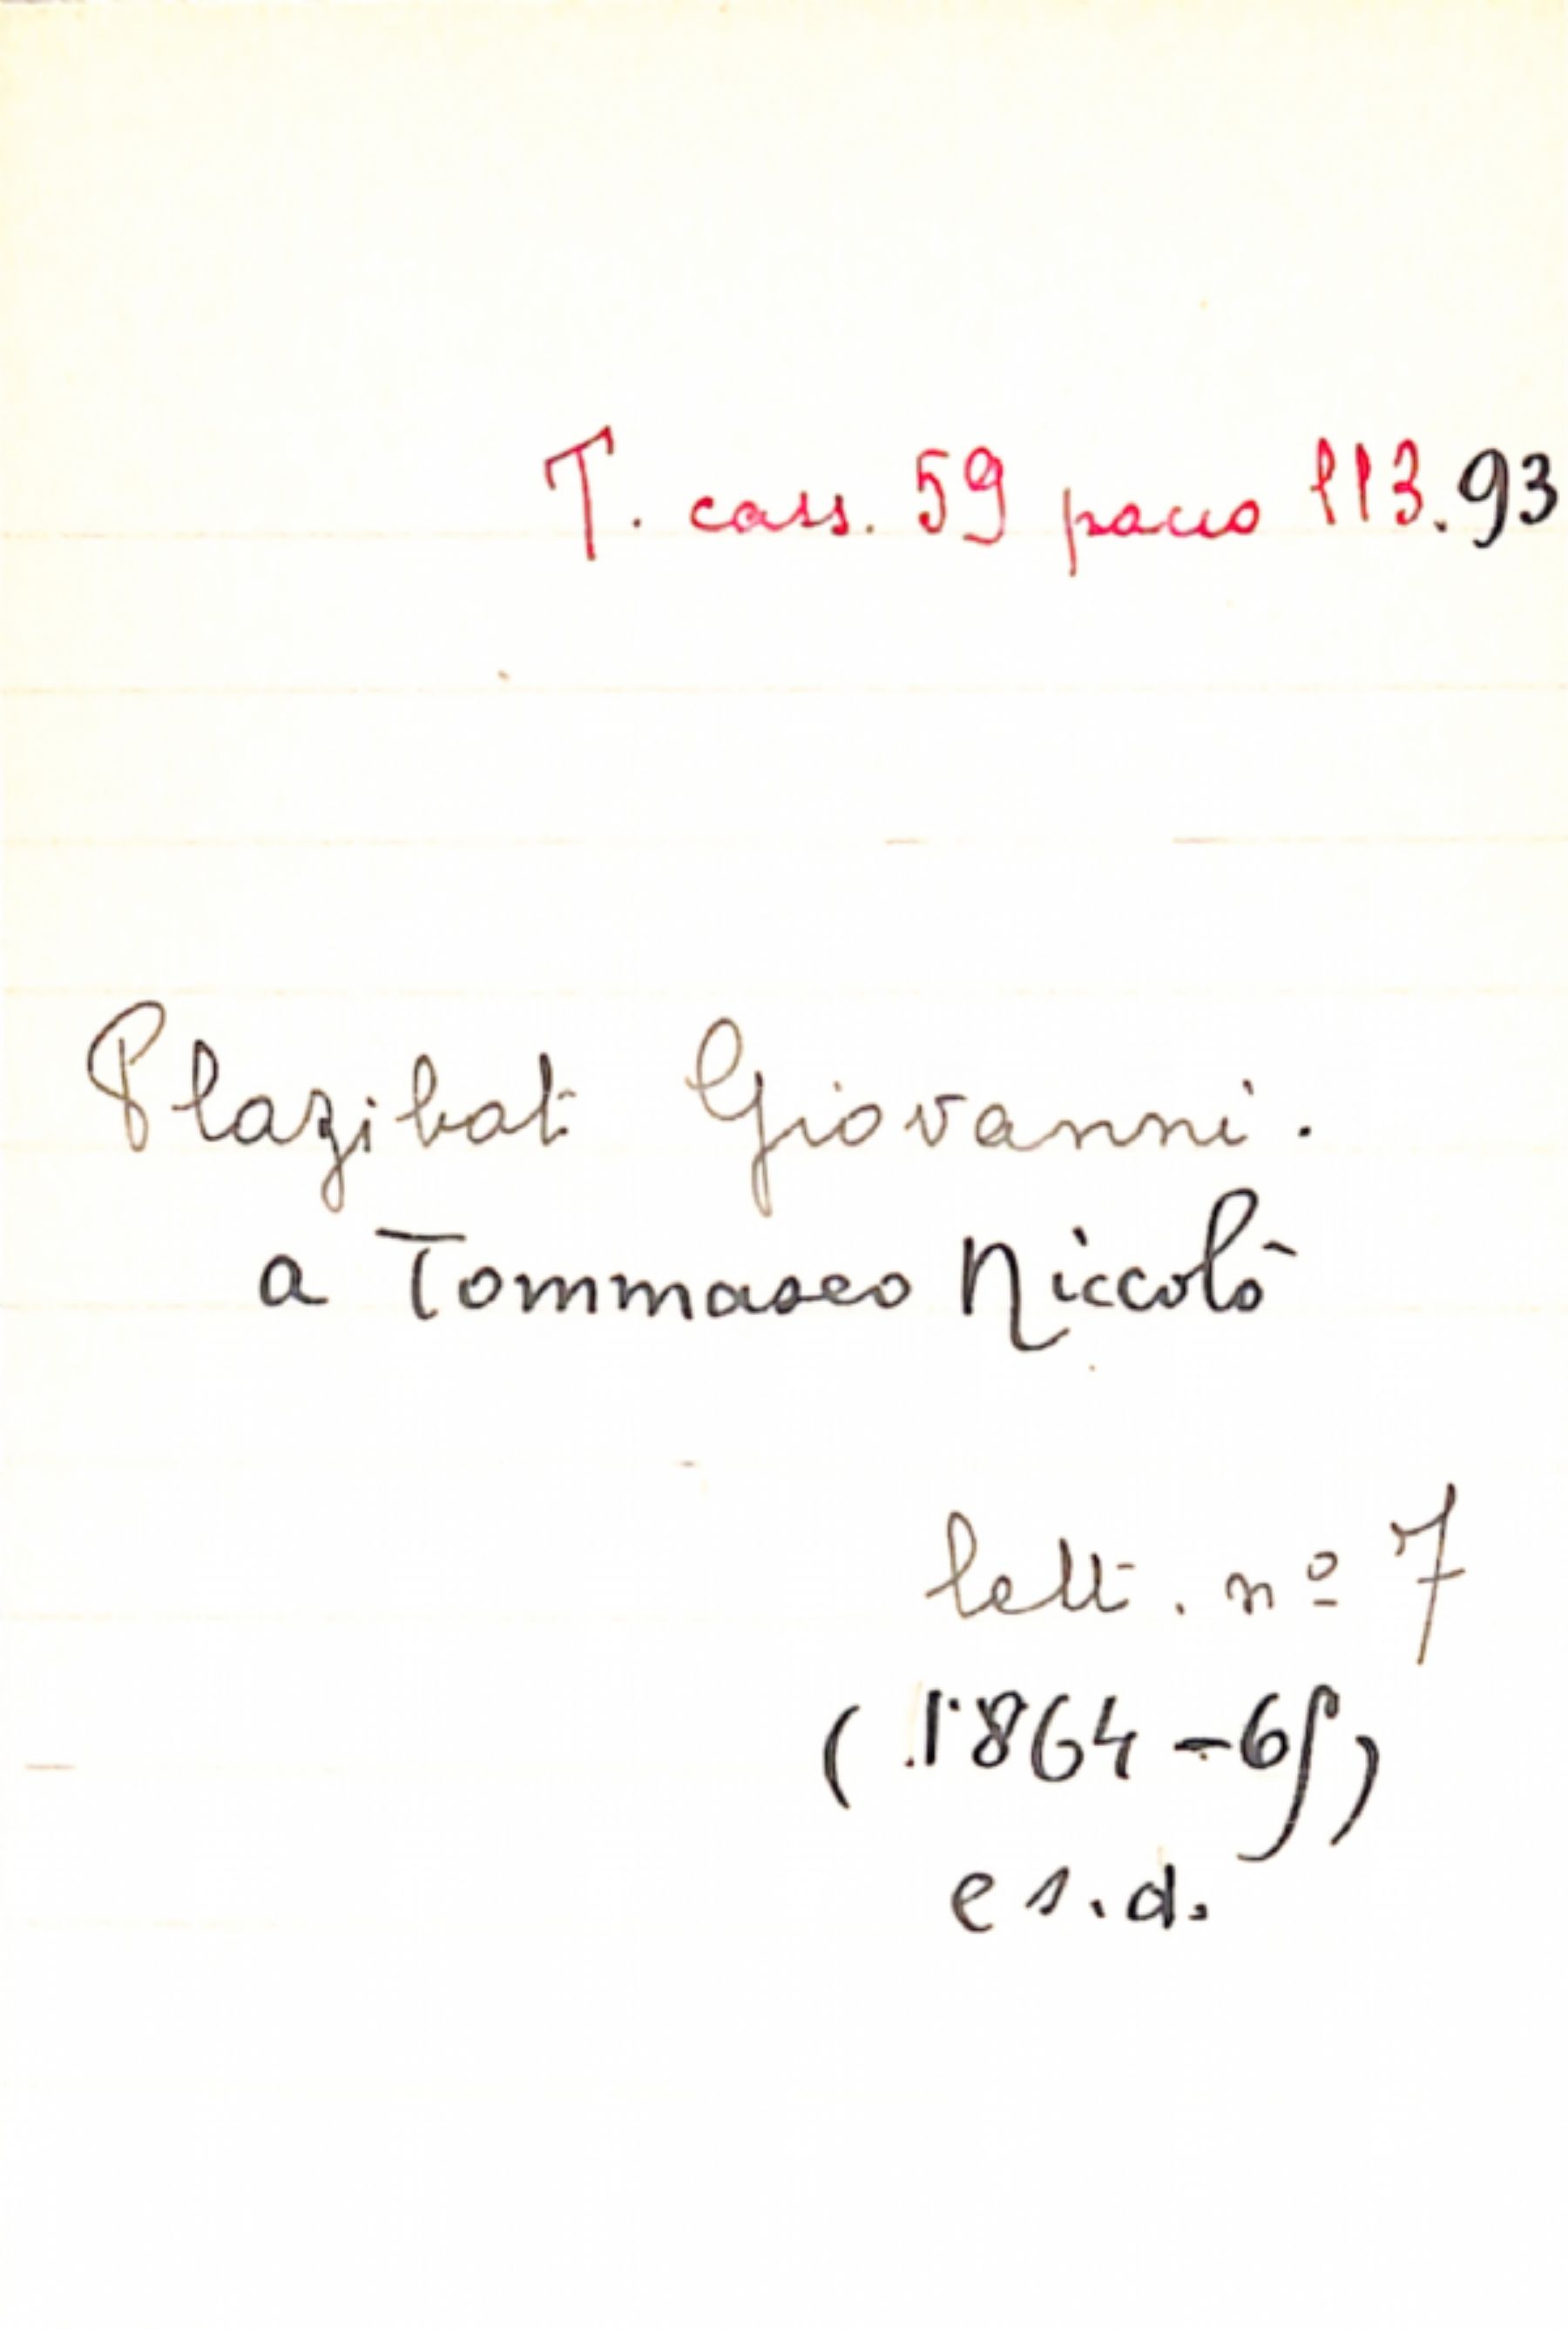 T. cass. 59 pacco 113.93
Plazibat Giovanni.
a Tommaseo Niccolò
lett. nº 7
(1864-65)
e s.d.